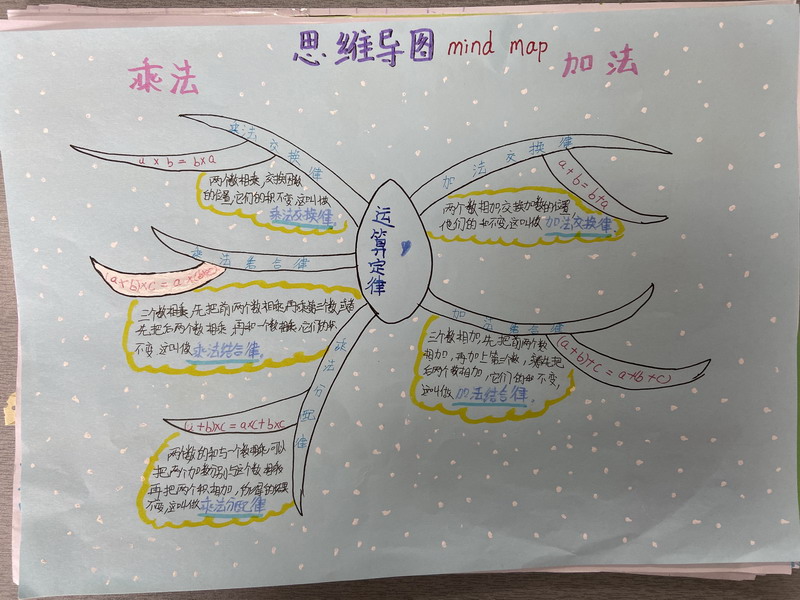 思维导图 mind map
乘法
加法
运算定律
乘法交换律
a×b=b×a
两个数相乘,交换因数
的位置,它们的积不变,这叫做
乘法交换律。
乘法结合律
三个数相乘,先把前两个数相乘,再乘第三个数,或者
先把后两个数相乘,再和一个数相乘,它们的积
不变,这叫做乘法结合律。
乘法分配律
+b)×c=a×c+b×c
两个数的和与一个数相乘,可以
把两个加数分别与这个数相乘
再把两个积相加,
不变,这叫做乘法分配律
加法交换律
a+b=b+a
两个数相加,交换加数的位置
他们的和不变,这叫做加法交换律。
加法结合律
(a+b)+c=a+(b+c)
三个数相加,先把前两个数
相加,再加上第三个数,先把
后两个数相加,它们的和不变,
这叫做加法结合律。